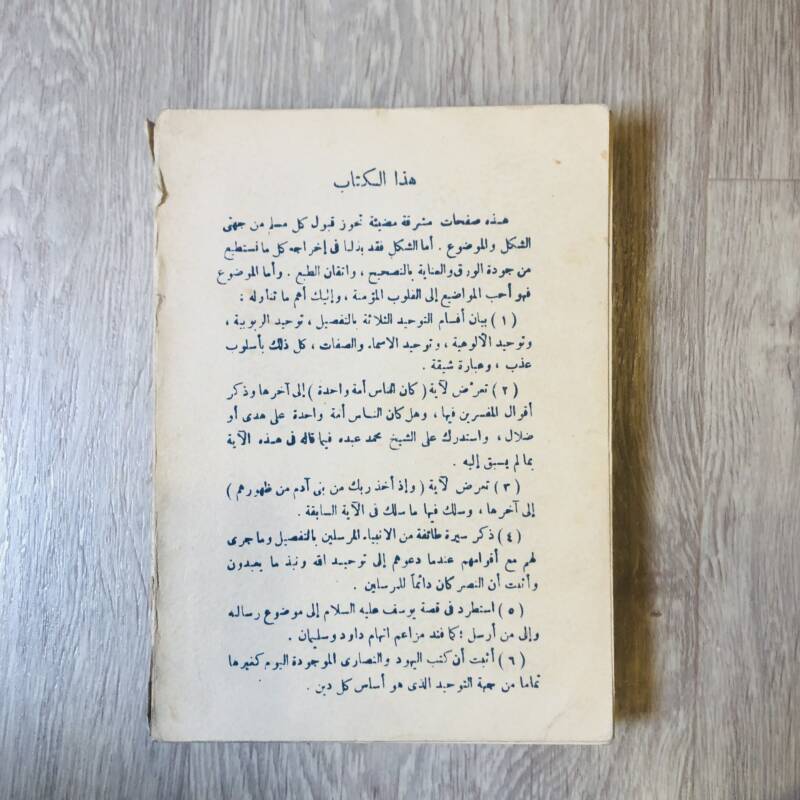 هذا الكتاب
هذه صفحات مشرقة مضيئة تحوز قبول كل مسلم من جهتى
الشكل والموضوع . أما الشكل فقد بذلنا فى إخراجه كل ما نستطيع
من جودة الورق والعناية بالتصحيح ، واتقان الطبع . وأما الموضوع
فهو أحب المواضيع إلى القلوب المؤمنة ، وإليك أهم ما تناوله :
( ١ ) بيان أقسام التوحيد الثلاثة بالتفصيل ، توحيد الربوبية ،
وتوحيد الألوهية ، وتوحيد الاسماء والصفات ، كل ذلك بأسلوب
عذب ، وعبارة شيقة .
( ٢ ) تعرّض لآية ( كان الناس أمة واحدة ) إلى آخرها وذكر
أقوال المفسرين فيها ، وهل كان الناس أمة واحدة على هدى أو
ضلال ، واستدرك على الشيخ محمد عبده فيما قاله فى هذه الآية
بما لم يسبق إليه .
( ٣ ) تعرض لآية ( وإذ أخذ ربك من بنى آدم من ظهورهم )
إلى آخرها ، وسلك فيها ما سلك فى الآية السابقة .
( ٤ ) ذكر سيرة طائفة من الانبياء المرسلين بالتفصيل وما جرى
لهم مع أقوامهم عندما دعوهم إلى توحيد الله ونبذ ما يعبدون
وأثبت أن النصر كان دائماً للمرسلين .
( ٥ ) استطرد فى قصة يوسف عليه السلام إلى موضوع رسالته
وإلى من أرسل ؛ كما فند مزاعم اتهام داود وسليمان .
( ٦ ) أثبت أن كتب اليهود والنصارى الموجودة اليوم كغيرها
تماما من جهة التوحيد الذى هو أساس كل دين .